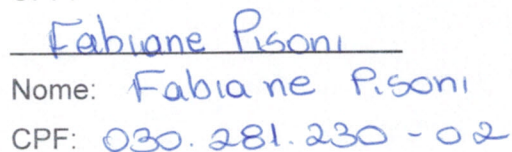 Fabiane Pisoni
Nome: Fabiane Pisoni
CPF: 030.281.230-02